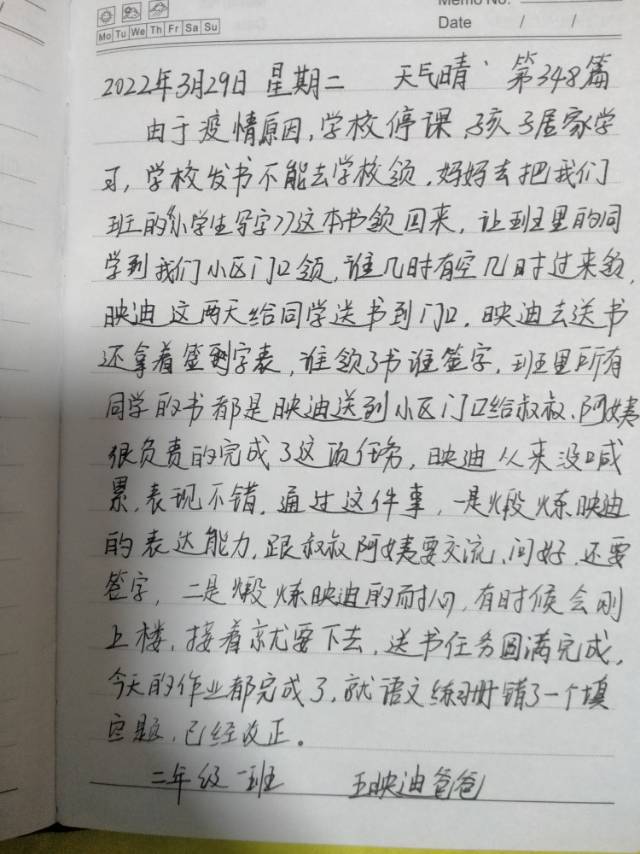 Memo No.
Mo Tu We Th Fr Sa Su
Date / /
2022年3月29日 星期二 天气晴 第348篇
由于疫情原因,学校停课,孩子居家学
习,学校发书不能去学校领,妈妈去把我们
班的《小学生写字》这本书领回来,让班里的同
学到我们小区门口领,谁几时有空几时过来领,
映迪这两天给同学送书到门口,映迪去送书
还拿着签到字表,谁领了书谁签字,班里所有
同学的书都是映迪送到小区门口给叔叔、阿姨
很负责的完成了这项任务,映迪从来没喊
累,表现不错,通过这件事,一是煅炼映迪
的表达能力,跟叔叔阿姨要交流、问好、还要
签字,二是煅炼映迪的耐心,有时候会刚
上楼,接着就要下去,送书任务圆满完成,
今天的作业都完成了,就语文练习册错了一个填
空题,已经改正。
二年级一班 王映迪爸爸